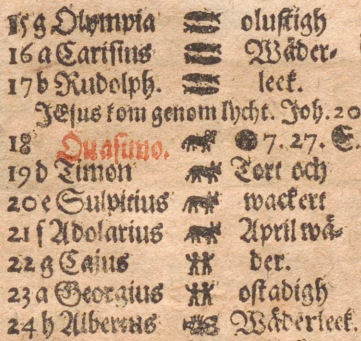 15 g Olympia olustigh
16 a Carisius Wäder-
17 b Rudolph. leek.
JEsus kom genom lycht. Joh. 20
18 Quasimo. 7. 27. E.
19 d Timon Tort och
20 e Sulpitius wackert
21 f Adolarius April wä-
22 g Cajus der.
23 a Georgius ostadigh
24 b Albertus Wäderleek.